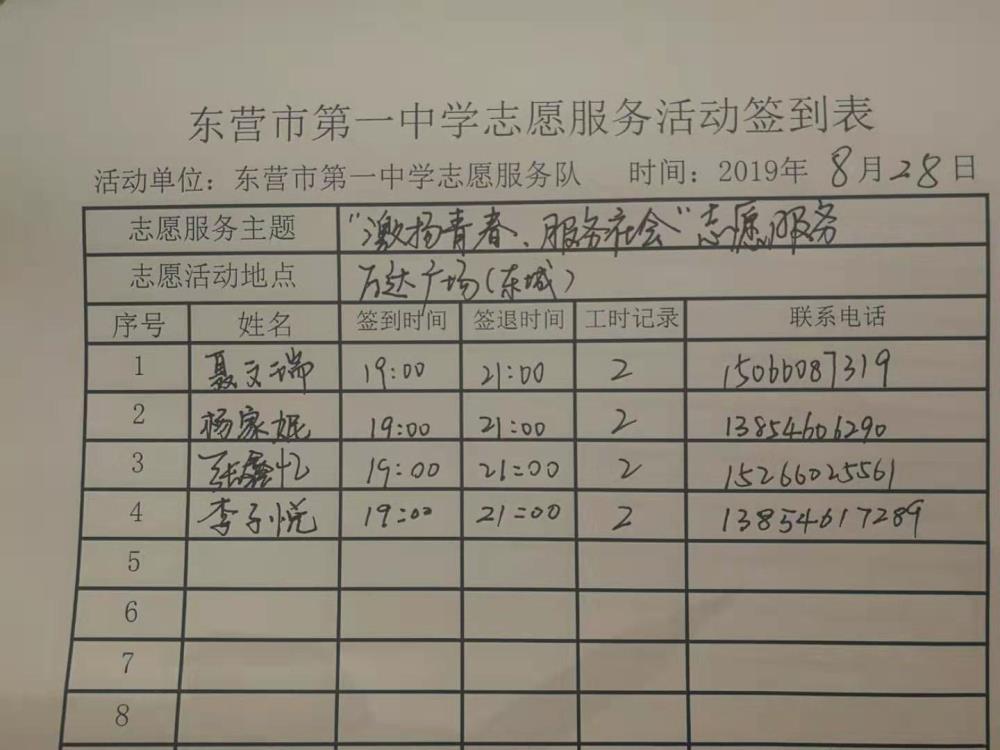 东营市第一中学志愿服务活动签到表
活动单位：东营市第一中学志愿服务队 时间：2019年 8月28日
志愿服务主题 “激扬青春、服务社会”志愿服务
志愿活动地点 万达广场(东城)
序号 姓名 签到时间 签退时间 工时记录 联系电话
1 聂文瑞 19:00 21:00 2 15066087319
2 杨家妮 19:00 21:00 2 13854606290
3 张鑫忆 19:00 21:00 2 15266025561
4 李子悦 19:00 21:00 2 13854617289
5
6
7
8